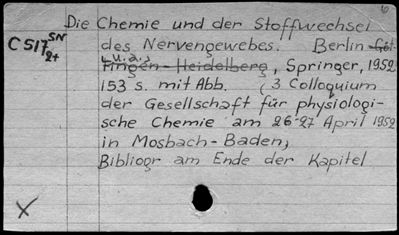 6
Die Chemie und der Stoffwechsel
C 517 SN 2+
des Nervengewebes. Berlin-Göt-
u.a.,
tingen-Heidelberg, Springer, 1952
153 s. mit Abb. (3 Colloquium
der Gesellschaft für physiologi-
sche Chemie am 26-27 April 1952
in Mosbach-Baden)
Bibliogr am Ende der Kapitel
X